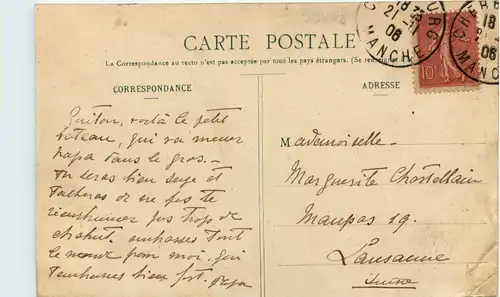 CARTE POSTALE
La Correspondance au recto n'est pas acceptée par tous les pays étrangers. (Se renseigner
CORRESPONDANCE
ADRESSE
voilà le petit
bateau, qui va mener
papa dans le gros. –
Tu seras bien sage et
tâcheras de ne pas te
pas trop de
chahut. embrasses tout
le monde pour moi. qui
t'embrasses bien fort. Papa
Mademoiselle –
Marguerite Chastellain
Maupas 19.
Lausanne
Suisse
CHERBOURG
18
21 -11
06
MANCHE
10c
CHERB
18
06
MANCHE